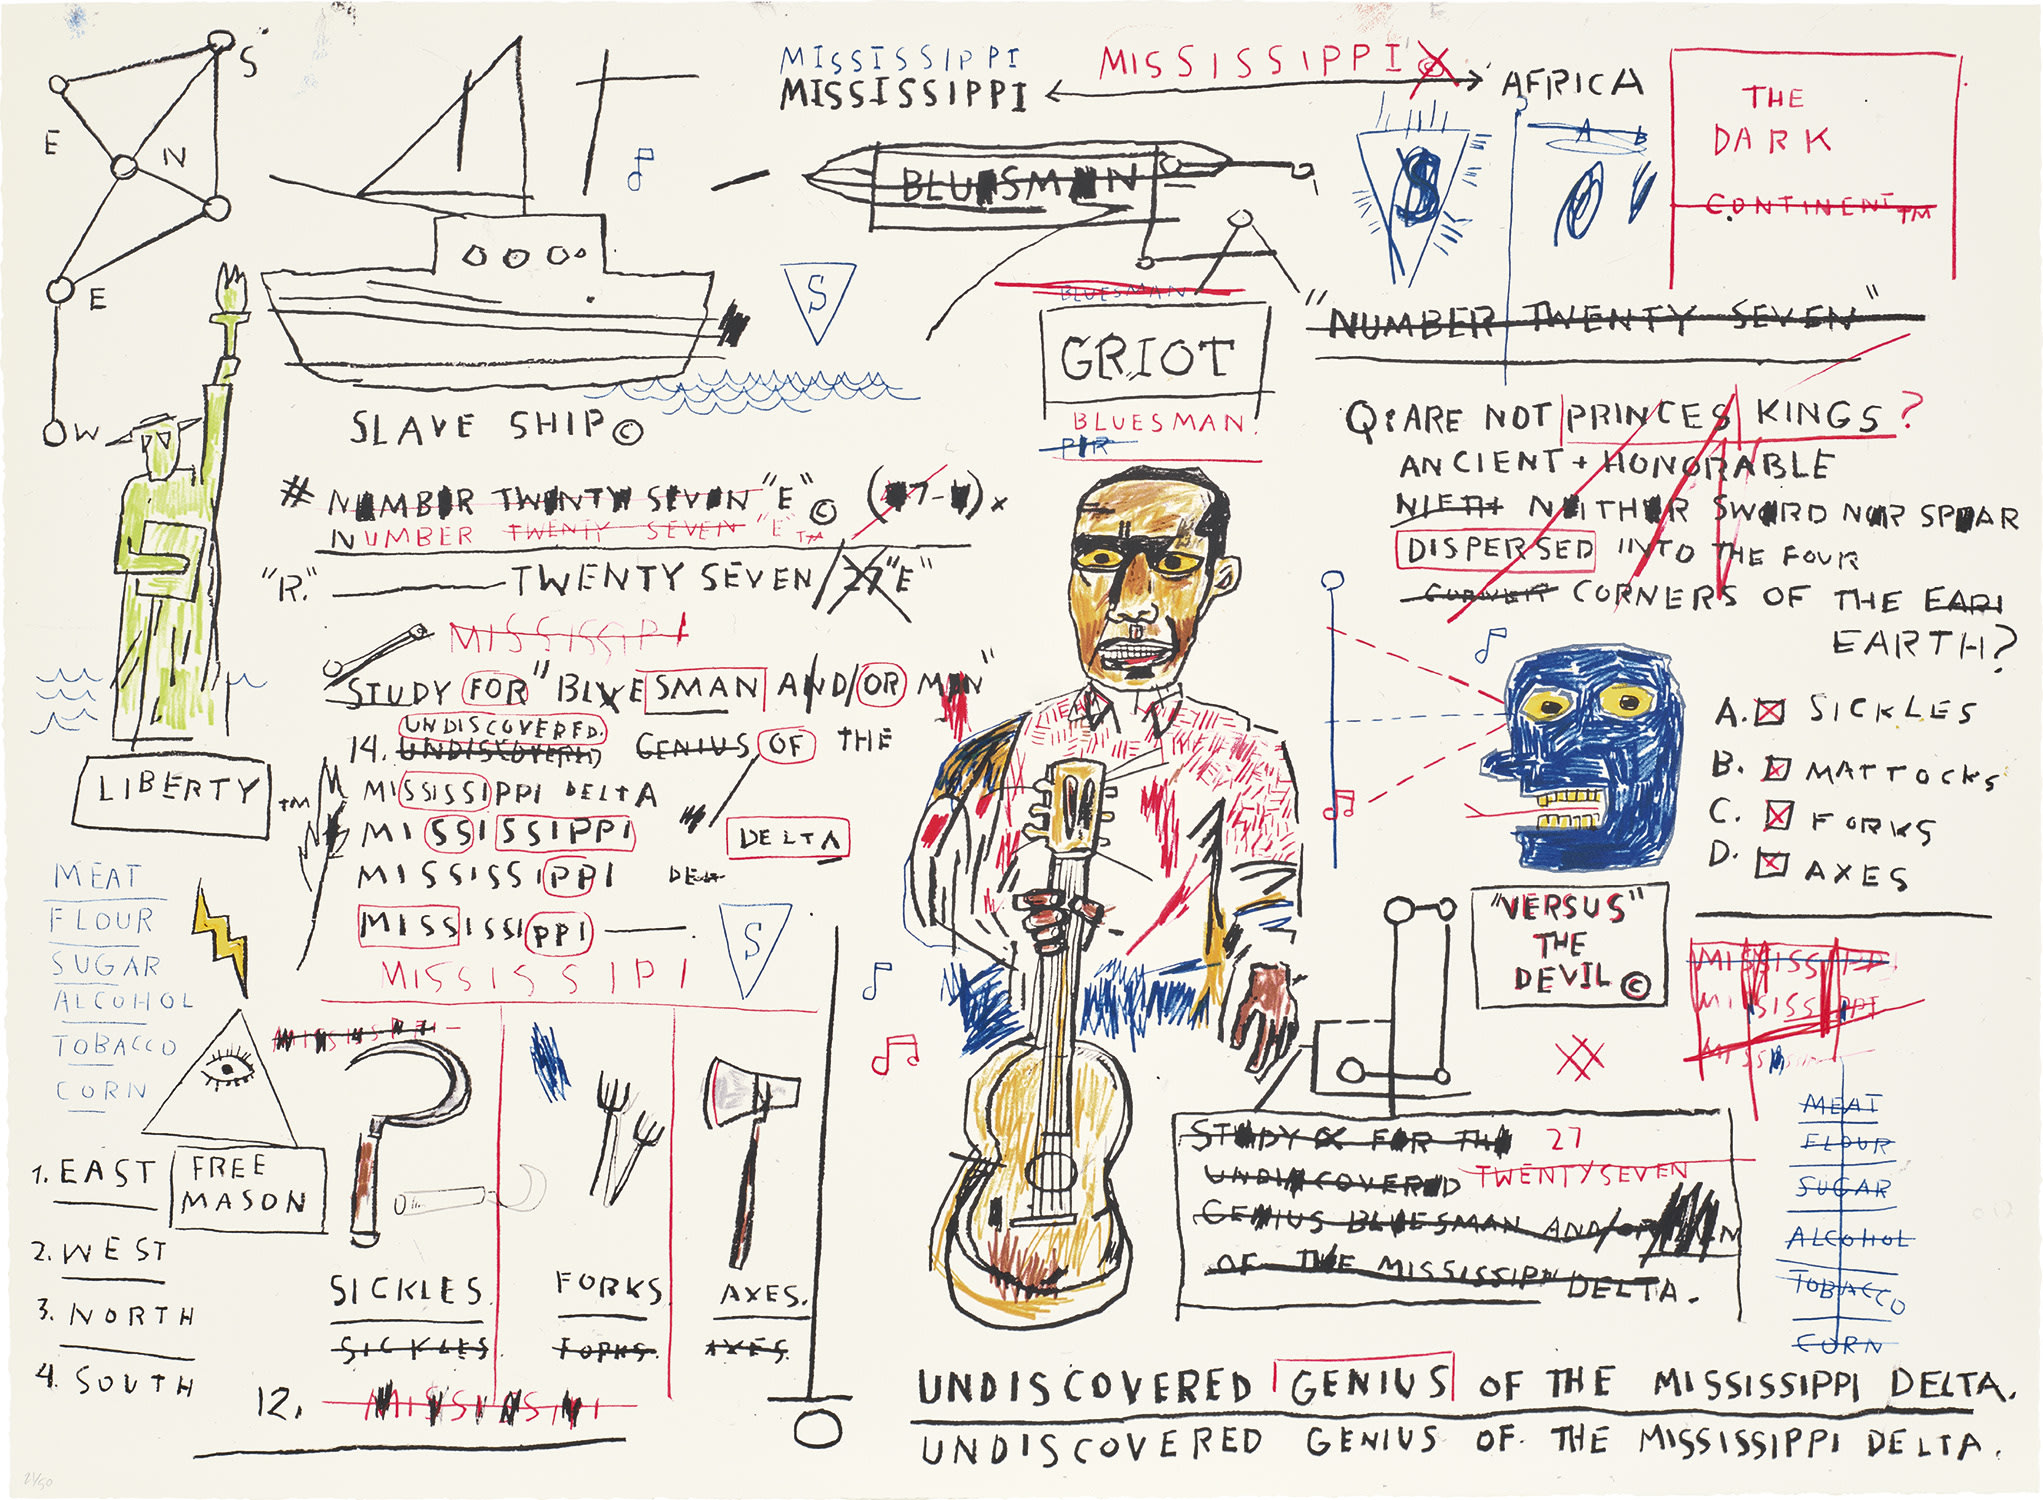 S
E
N
E
W
MISSISSIPPI
MISSISSIPPI
MISSISSIPPI
AFRICA
THE
DARK
CONTINENT™
BLUESMAN
S
A B
S
BLUESMAN
GRIOT
BLUESMAN.
"NUMBER TWENTY SEVEN"
SLAVE SHIP ©
# NUMBER TWENTY SEVEN "E" ©
NUMBER TWENTY SEVEN "E" TM
"R." TWENTY SEVEN/27 "E"
Q: ARE NOT PRINCES KINGS?
ANCIENT + HONORABLE
NIETH NEITHER SWORD NOR SPEAR
DISPERSED INTO THE FOUR
CORNERS OF THE EARI
EARTH?
MISSISSIPI
STUDY FOR "BLUESMAN AND/OR MAN"
UNDISCOVERED.
14. UNDISCOVERED GENIUS OF THE
MISSISSIPPI DELTA
MISSISSIPPI DELTA
MISSISSIPPI
MISSISSIPPI
S
MISSISSIPI
LIBERTY TM
A. SICKLES
B. MATTOCKS
C. FORKS
D. AXES
"VERSUS"
THE
DEVIL ©
MISSISSIPPI
MISSISSIPPI
MEAT
FLOUR
SUGAR
ALCOHOL
TOBACCO
CORN
FREE
MASON
1. EAST
2. WEST
3. NORTH
4. SOUTH
SICKLES.
SICKLES.
FORKS.
FORKS.
AXES.
AXES.
12. MISSISSIPI
STUDY FOR THE 27
UNDISCOVERED TWENTYSEVEN
GENIUS BLUESMAN AND/OR MAN
OF THE MISSISSIPPI DELTA.
MEAT
FLOUR
SUGAR
ALCOHOL
TOBACCO
CORN
UNDISCOVERED GENIUS OF THE MISSISSIPPI DELTA.
UNDISCOVERED GENIUS OF THE MISSISSIPPI DELTA.